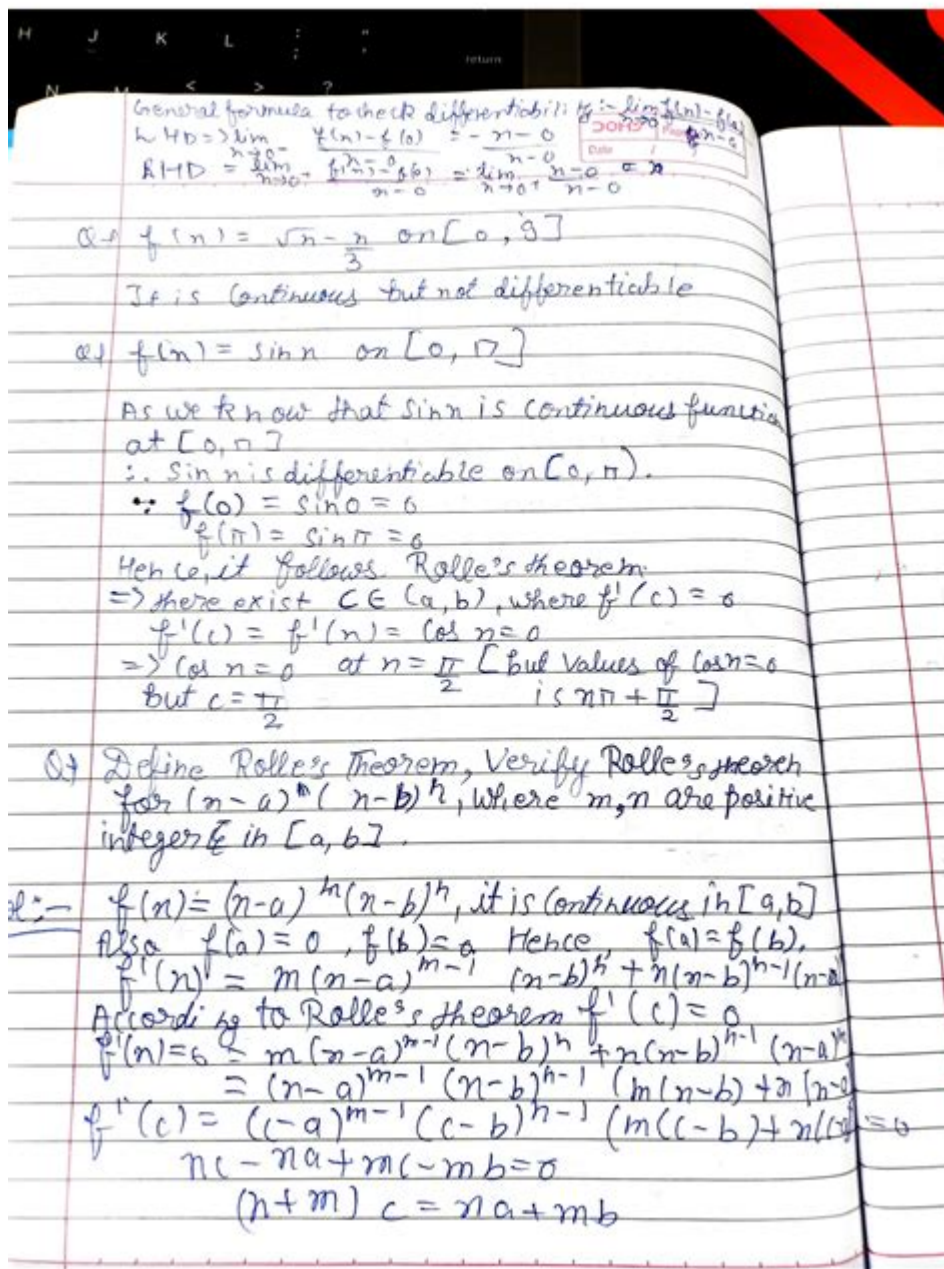 H J K L : ; "
return
N M < > ?
General formula to check differentiability :- lim n→0 f(n)-f(a) / n-a
LHD => lim n→0- f(n)-f(0) / n-0 = -n-0 / n-0
RHD = lim n→0+ f(n)-f(0) / n-0 = lim n→0+ n-0 / n-0
Date / /
Q→ f(n) = √n - n/3 on [0, 9]
It is Continuous but not differentiable
Q→ f(n) = sin n on [0, π]
As we know that sin n is continuous function
at [0, π]
∴ Sin n is differentiable on [0, π).
∵ f(0) = sin 0 = 0
f(π) = sin π = 0
Hence, it follows Rolle's theorem
=> there exist C ∈ (a, b), where f'(c) = 0
f'(c) = f'(n) = Cos n = 0
=> Cos n = 0 at n = π/2 [but values of Cos n = 0
but c = π/2 is nπ + π/2 ]
Q→ Define Rolle's Theorem, Verify Rolle's theorem
for (n-a)^m (n-b)^n, where m,n are positive
integer in [a, b].
f(n) = (n-a)^m (n-b)^n, it is Continuous in [a,b]
Also f(a) = 0, f(b) = 0 Hence, f(a) = f(b).
f'(n) = m(n-a)^m-1 (n-b)^n + n(n-b)^n-1 (n-a)
According to Rolle's theorem f'(c) = 0
f'(n) = 0 = m(n-a)^m-1 (n-b)^n + n(n-b)^n-1 (n-a)^m
= (n-a)^m-1 (n-b)^n-1 (m(n-b) + n(n-a)
f'(c) = (c-a)^m-1 (c-b)^n-1 (m(c-b) + n(c-a) = 0
nc - na + mc - mb = 0
(n+m) c = na + mb